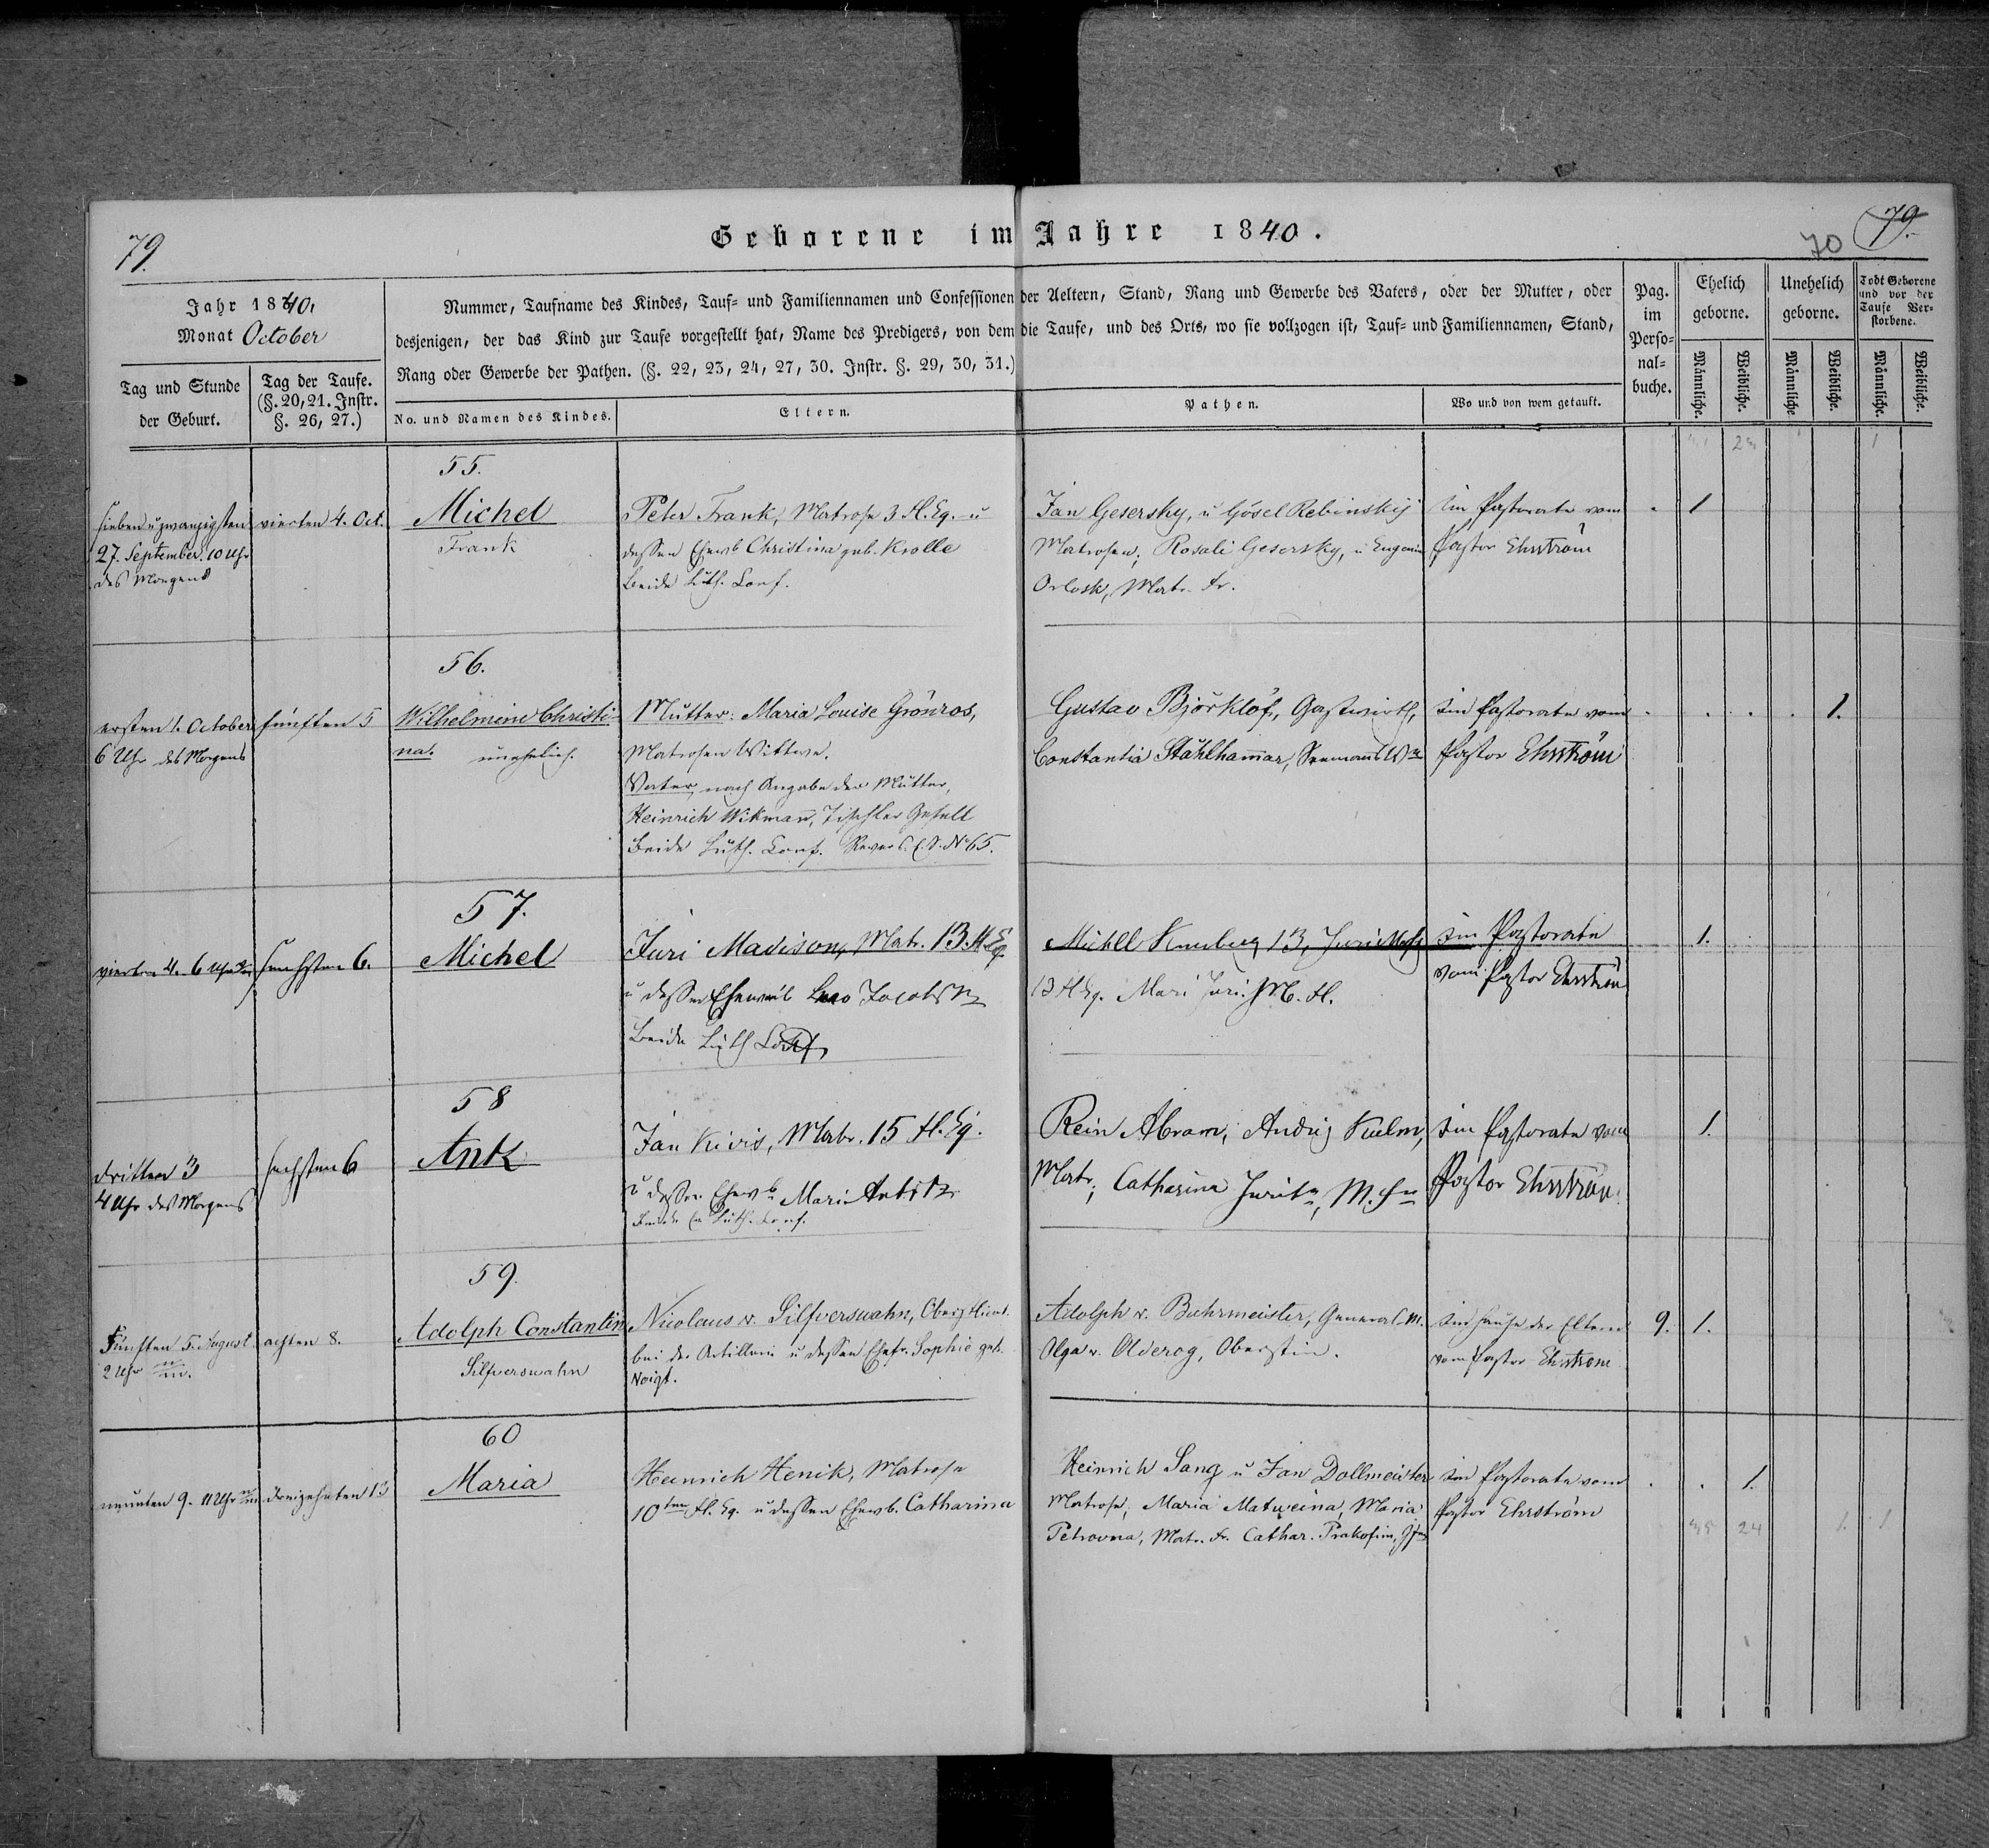 79.
Geborene im Jahre 1840.
70
79.
Jahr 1840,
Monat October
Nummer, Taufname des Kindes, Tauf- und Familiennamen und Confessionen der Aeltern, Stand, Rang und Gewerbe des Vaters, oder der Mutter, oder
desjenigen, der das Kind zur Taufe vorgestellt hat, Name des Predigers, von dem die Taufe, und des Orts, wo sie vollzogen ist, Tauf- und Familiennamen, Stand,
Rang oder Gewerbe der Pathen. (§. 22, 23, 24, 27, 30. Instr. §. 29, 30, 31.)
Pag.
im
Perso-
nal-
buche.
Ehelich
geborne.
Unehelich
geborne.
Todt Geborene
und vor der
Taufe Ver-
storbene.
Tag und Stunde
der Geburt.
Tag der Taufe.
(§. 20, 21. Instr.
§. 26, 27.)
No. und Namen des Kindes.
Eltern.
Pathen.
Wo und von wem getauft.
Männliche.
Weibliche.
Männliche.
Weibliche.
Männliche.
Weibliche.
55.
sieben u zwanzigsten
27. September. 10 Uhr
des Morgens
vierten 4. Oct.
Michel
Frank
Peter Frank, Matrose 3 Fl. Eq. u
dessen Ehewb Christina geb. Krolle
beide Luth. Conf.
Jan Gesersky, u Gösel Rebinskij
Matrosen; Rosali Gesersky, u Eugenia
Orlosk, Matr. Fr.
im Pastorate vom
Pastor Ehrström
1
56.
ersten 1. October
6 Uhr des Morgens
fünften 5
Wilhelmine Christi-
na. unehelich.
Mutter: Maria Louise Grönros,
Matrosen Wittwe.
Vater, nach Angabe der Mutter,
Heinrich Wikman, Tischler Gesell
beide Luth. Conf. Revers No 65.
Gustav Björklöf, Gastwirth,
Constantia Stahlhammar, Seemans
im Pastorate vom
Pastor Ehrström
1.
57.
vierten 4. 6 Uhr
sechsten 6.
Michel
Juri Madison, Matr. 13. Fl Eq.
u dessen Eheweib Leno Jacobs
beide Luth Conf
Michel 13, Juri
13 Fl Eq. Mari Juri. M. Fr.
im Pastorate
vom Pastor Ehrström
1.
58
dritten 3
4 Uhr des Morgens
sechsten 6
Ank
Jan Kivis, Matr. 15 Fl. Eq.
u dessen Ehewb Mari
beide Luth. Conf.
Rein Abram, Andrij Kulm,
Matr; Catharina M. Fr
im Pastorate vom
Pastor Ehrström.
1.
59.
Fünften 5. August
2 Uhr
achten 8.
Adolph Constantin
Silfverswahn
Nicolaus v. Silfverswahn,
bei der Artillerie u dessen Ehefr. Sophie geb.
Voigt.
Adolph v. Buhrmeister, General-M.
Olga v. Olderog, Oberstin.
im Hause der Eltern
vom Pastor Ehrström
9.
1.
60
neunten 9. 11 Uhr
dreizehnten 13
Maria
Heinrich Henik, Matrose
10ten Fl. Eq. u dessen Ehewb. Catharina
Heinrich Sang u Jan Dollmeister
Matrose, Maria Matweina, Maria
Petrovna, Matr. Fr. Cathar. Prakofiw,
im Pastorate vom
Pastor Ehrström
1.
24
1.
1